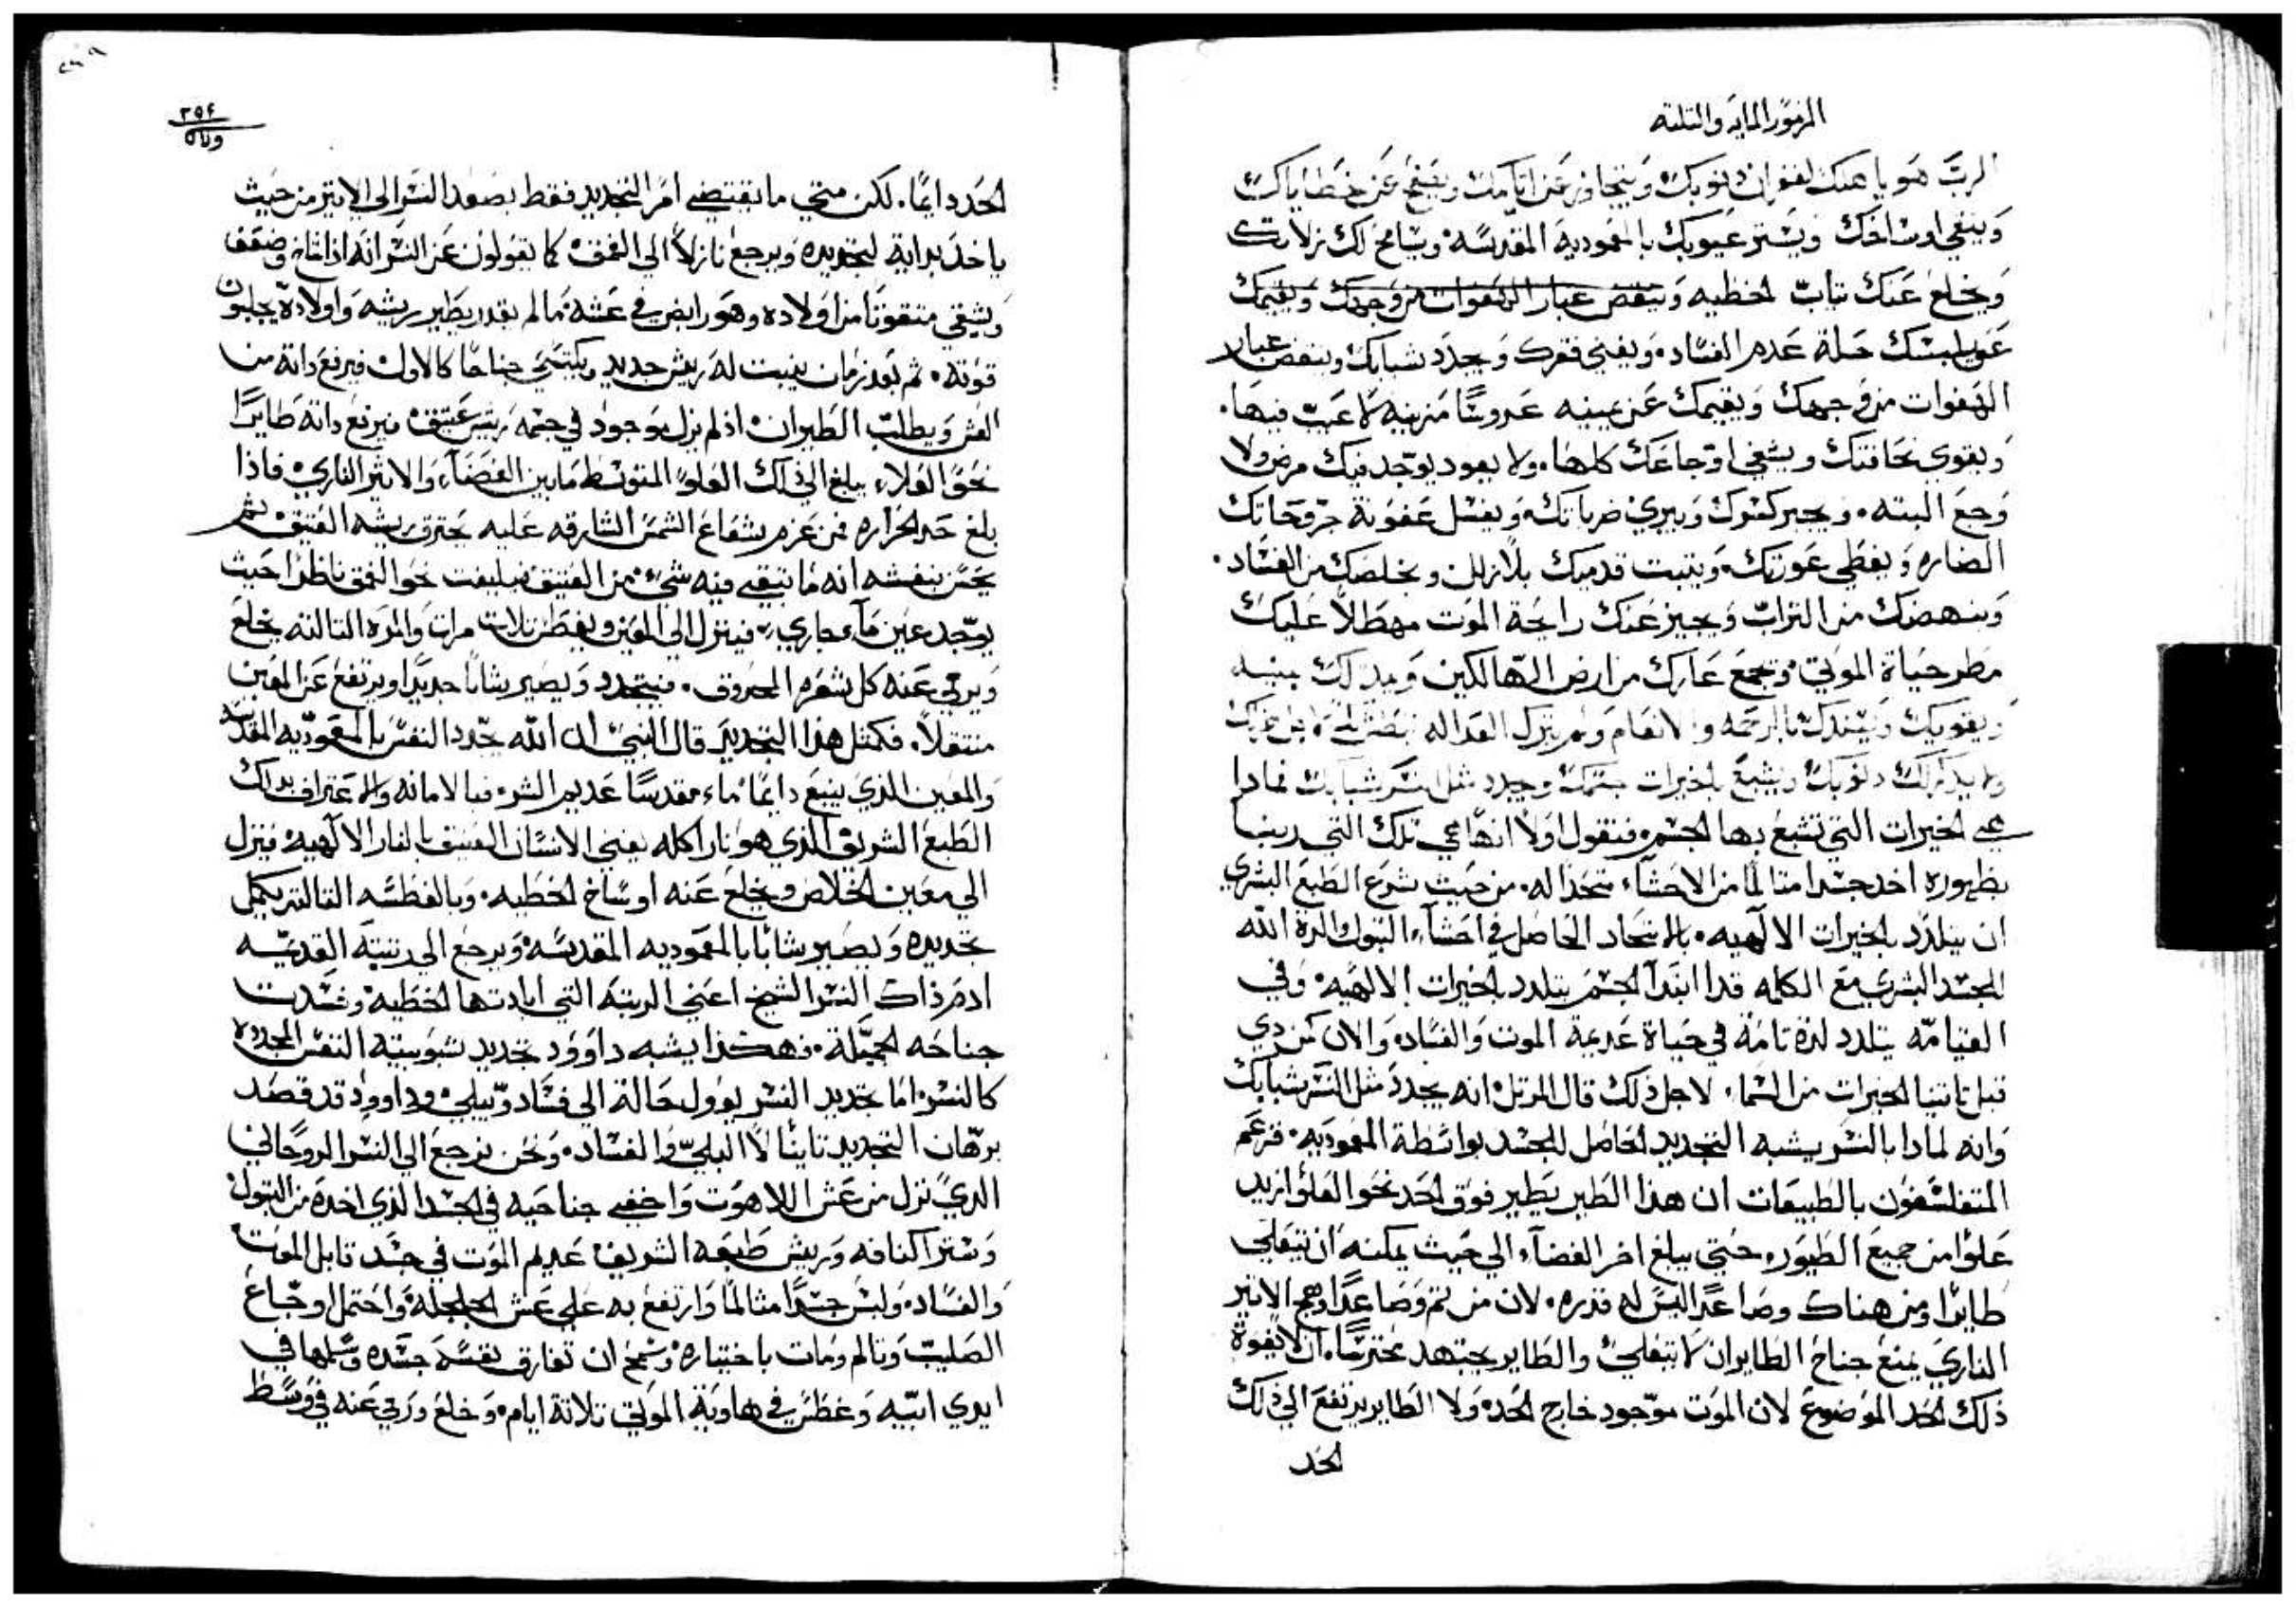 المزمور المايه والتلته
الربّ هو ياهلك لغفران دنوبك ويتجاوز عن اتامك ويصفح عن خطاياك
وينقي اوساخك ويستر عيوبك بالمعموديه المقدسه ويسامح لك زلاتك
ويخلع عنك تياب الخطيه وينفض غبار الهفوات من وجهك ويقيمك
عوض لبسك حلة عدم الفساد ويغني فقرك ويجدد شبابك وينفض غبار
الهفوات من وجهك ويقيمك عن يمينه عروسًا مزينه لا عيب فيها.
ويقوي نحافتك ويشفي اوجاعك كلها. ولا يعود يوجد فيك مرض ولا
وجع البته. ويجبر كسرك ويبري ضرباتك ويغسل عفونة جروحاتك
الضاره ويغطي عورتك ويتبت قدميك بلا زلل ويخلصك من الفساد.
وينهضك من التراب ويجيز عنك رايحة الموت مهطلاً عليك
مطر حياة الموتي ويجمع عارك من ارض الهالكين ويدلك بيمينه
ويقويك ويسندك بالرحمه والانعام ولم يترك العداله
ولا يدكر لك دنوبك ويشبع بالخيرات جسمك ويجدد مثل النسر شبابك فمادا
هي الخيرات التي تشبع بها الجسم فنقول اولاً انها هي تلك التي ربنا
بظهوره اخد جسدا متالمًا من الاحشاء متحدا له. من حيث شرع الطبع البشري
ان يتلدد بالخيرات الالهيه. بالاتحاد الحاصل في احشاء البتول والدة الله
للجسد البشري مع الكلمه قد ابتدا الجسم يتلدد بالخيرات الالهيه وفي
القيامه يتلدد لدة تامة في حياة عديمة الموت والفساد والان كمن دي
قبل تاتينا الخيرات من السما. لاجل دلك قال المرتل انه يجدد مثل النسر شبابك
وانه لمادا بالنسر يشبه التجديد الحاصل للجسد بواسطة المعموديه. فزعم
المتفلسفون بالطبيعات ان هذا الطير يطير فوق الحد نحو العلو ازيد
علوًا من جميع الطيور حتي يبلغ اخر الفضاء الي حيث يمكنه ان يتعلي
طايرًا ومن هناك وصاعدًا ليس له قدره. لان من تم وصاعدًا وهج الاتير
الناري يمنع جناح الطايران لا يتعلي والطاير يجتهد محترسًا ان لا يفوة
ذلك الحد الموضوع لان الموت موجود خارج الحد ولا الطاير يرتفع الي ذلك
الحد
٣٥٤
الحد دايمًا. لكن متي ما يقتضي امر التجديد فقط يصعد النسر الي الاتير من حيث
ياخد بداية لتجديده ويرجع نازلاً الي العمق كما يقولون عن النسر انه ادا شاخ وضعف
ويبقي متقوتًا من اولاده وهو رابض في عشه ما لم يقدر يطير بريشه واولاده يجلبون
قوته. تم بعد زمان ينبت له ريش جديد ويكتسي جناحًا كالاول فيرفع داته من
العش ويطلب الطيران اذ لم يزل موجود في جسمه ريش عتيق فيرفع داته طايرًا
نحو العلاء يبلغ الي ذلك العلو المتوسط ما بين الفضاء والاتير الناري فاذا
بلغ حد الحراره فمن عزم شعاع الشمس الشارقه عليه يحترق ريشه العتيق تم
يحس بنفسه انه ما تبقي فيه شي من العتيق فيلتفت نحو العمق ناظرًا حيث
يوجد عين ماء جاري فينزل الي العين ويغطس تلات مرات والمره التالته يخلع
ويرمي عنه كل شعره المحروق. فيتجدد ويصير شابًا جديدًا ويرتفع عن العين
متنقلاً. فكمثل هذا التجديد قال النبي ان الله يجدد النفس بالمعموديه المقدسه
والمعين الذي ينبع دايمًا ماء مقدسًا عديم الشر فبالامانه والاعتراف بدلك
الطبع الشريف الذي هو نارًا كله يفني الانسان العتيق بالنار الالهيه فينزل
الي معين الخلاص ويخلع عنه اوساخ الخطيه. وبالغطسه التالته يكمل
تجديده ويصير شابًا بالمعموديه المقدسه ويرجع الي رتبته القديمه
ادم ذاك النسر الشيخ اعني الرتبه التي ابادتها الخطيه وفسدت
جناحه الجميلة. فهكذا يشبه داوود تجديد شبوبيته النفس المجدده
كالنسر اما تجديد النسر يوول حالة الي فساد وبلي وداوود قد قصد
برهان التجديد تابتًا لا البلي والفساد. ونحن نرجع الي النسر الروحاني
الدي نزل من عش اللاهوت واخفي جناحيه في الجسد الذي اخده من البتول
وستر اكتافه وريش طبعه الشريف عديم الموت في جسد قابل الموت
والفساد ولبس جسدًا متالمًا وارتفع به علي عش الجلجله واحتمل اوجاع
الصليب وتالم ومات باختياره وسمح ان تفارق نفسه جسده وسلمها في
ايدي ابيه وغطس في هاوية الموتي تلاتة ايام وخلع ورمي عنه في وسط